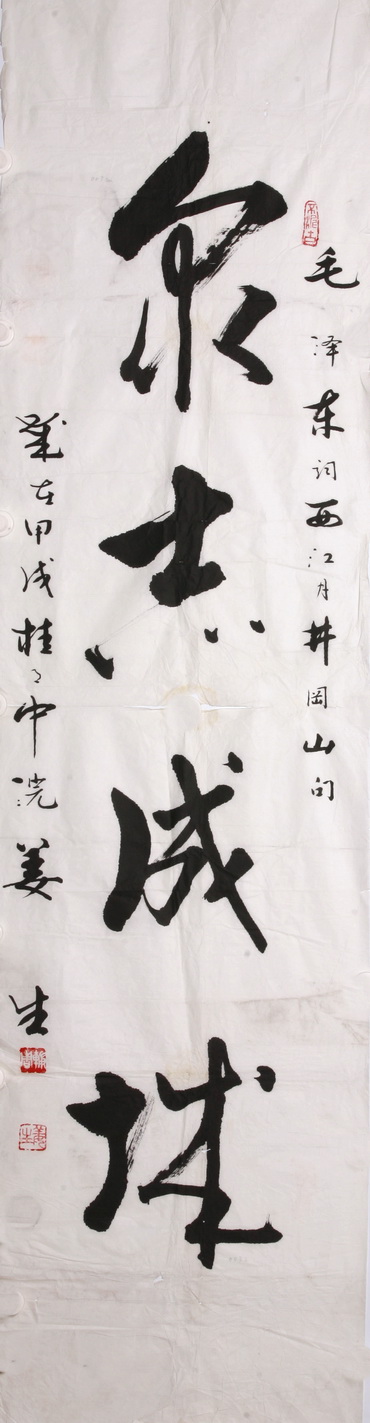 毛泽东词西江月井冈山句
众志成城
岁在甲戌桂月中浣姜生